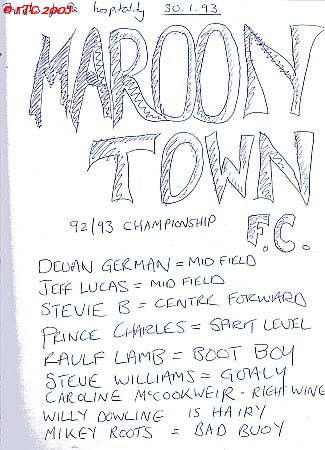 © TTC 2009 hospitality 30.1.93
MAROON
TOWN
92/93 CHAMPIONSHIP F.C.
DEUAN GERMAN = MID FIELD
JEFF LUCAS = MID FIELD
STEVIE B = CENTRE FORWARD
PRINCE CHARLES = SPIRIT LEVEL
RAULF LAMB = BOOT BOY
STEVE WILLIAMS = GOALY
CAROLINE McCOOKWEIR - RIGHT WING
WILLY DOWLING IS HAIRY
MIKEY ROOTS = BAD BUOY